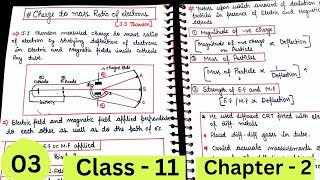 # Charge to mass Ratio of electrons
(J.J Thomson)
⇒ J.J Thomson measured charge to mass ratio
of electron by studying deflection of electrons
in Electric and Magnetic fields inside cathode
Ray tube.
Cathode
Anode
Battery
⇒ Electric field and magnetic field applied perpendicular
to each other as well as to the path of
E.F and M.F applied
upon which amount of deviation of
particle in presence of Electric and Magnetic
depends
① Magnitude of -ve charge
[Magnitude of -ve charge ∝ Deflection]
② Mass of Particles
[Mass of Particles ∝ 1/Deflection]
③ Strength of E.F and M.F
[E.F / M.F ∝ Deflection]
• He used different CRT fitted with
of diff. metals
• Placed diff-diff gases in tube.
• Carried accurate measurements
03
Class - 11
Chapter - 2